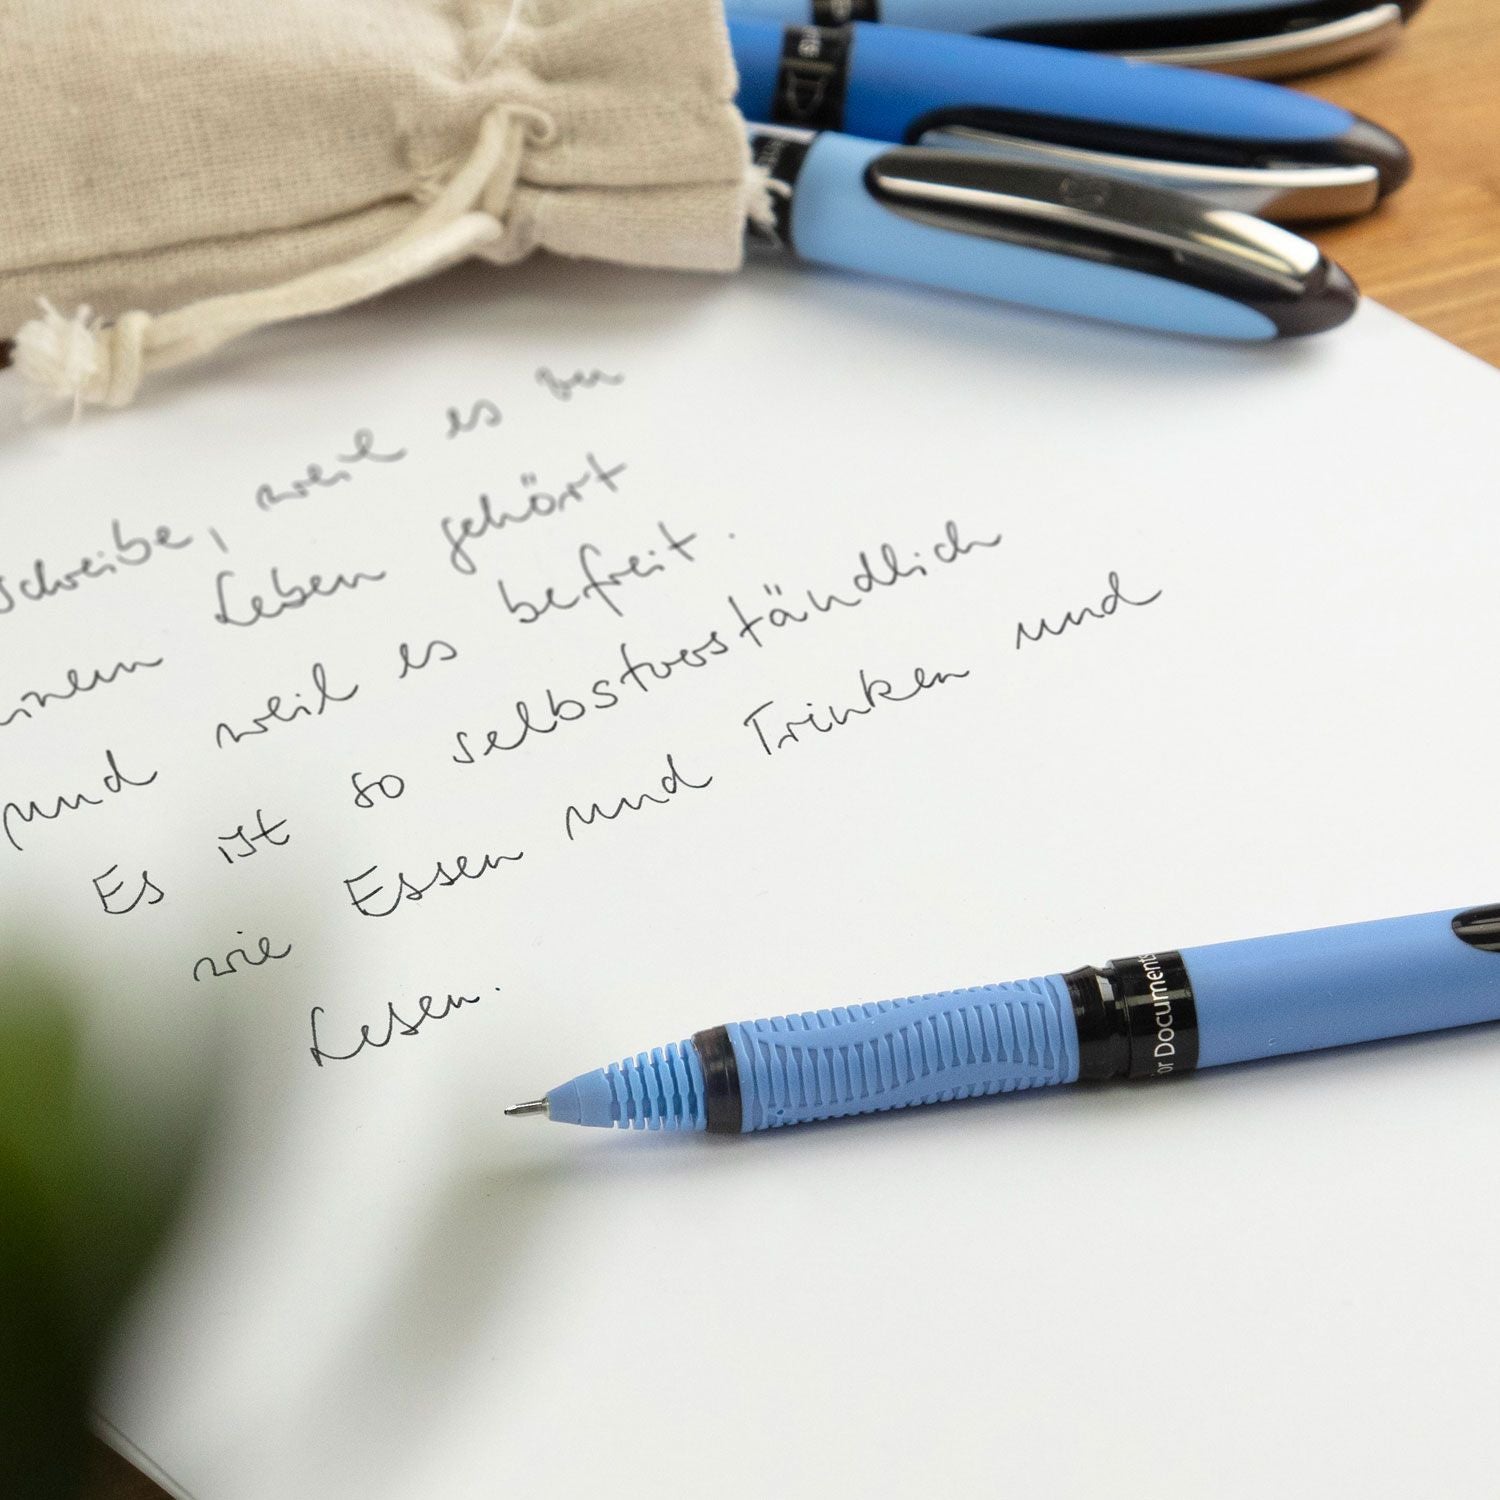 schreibe, weil es zu
meinem Leben gehört
und weil es befreit.
Es ist so selbstverständlich
wie Essen und Trinken und
Lesen.
or Documents